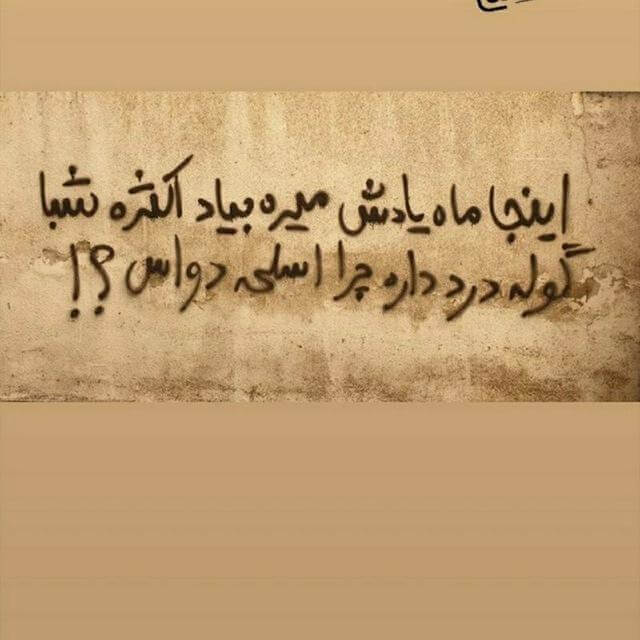 اینجا ماه یادش میره بیاد اکثره شبا
گوله درد داره چرا اسلحه دواس ؟!